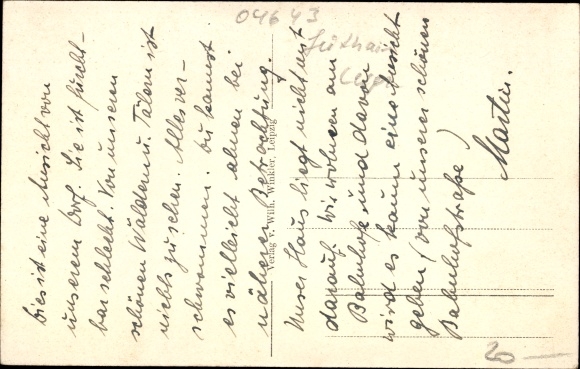 Dies ist eine Ansicht von
unserem Dorf. Sie ist furcht-
bar schlecht. Von unseren
schönen Wäldern u. Tälern ist
nichts zu sehen. Alles ver-
schwommen. Du kannst
es vielleicht ahnen bei
näherer Betrachtung.
Unser Haus liegt nicht mit
darauf. Wir wohnen am
Bahnhof und davon
wird es kaum eine Ansicht
geben (von unserer schönen
Bahnhofstraße)
Martin.
Verlag v. Wilh. Winkler, Leipzig
04643
20